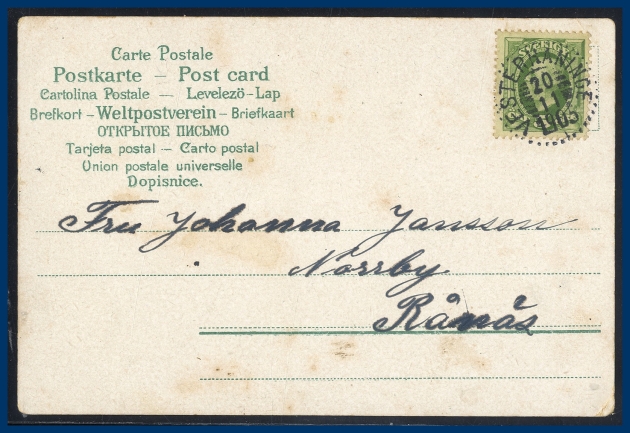 Carte Postale
Postkarte – Post card
Cartolina Postale – Levelezö-Lap
Brefkort – Weltpostverein – Briefkaart
ОТКРЫТОЕ ПИСЬМО
Tarjeta postal – Carto postal
Union postale universelle
Dopisnice.
SVERIGE
20
11
1903
Fru Johanna Jansson
Norrby
Rånäs